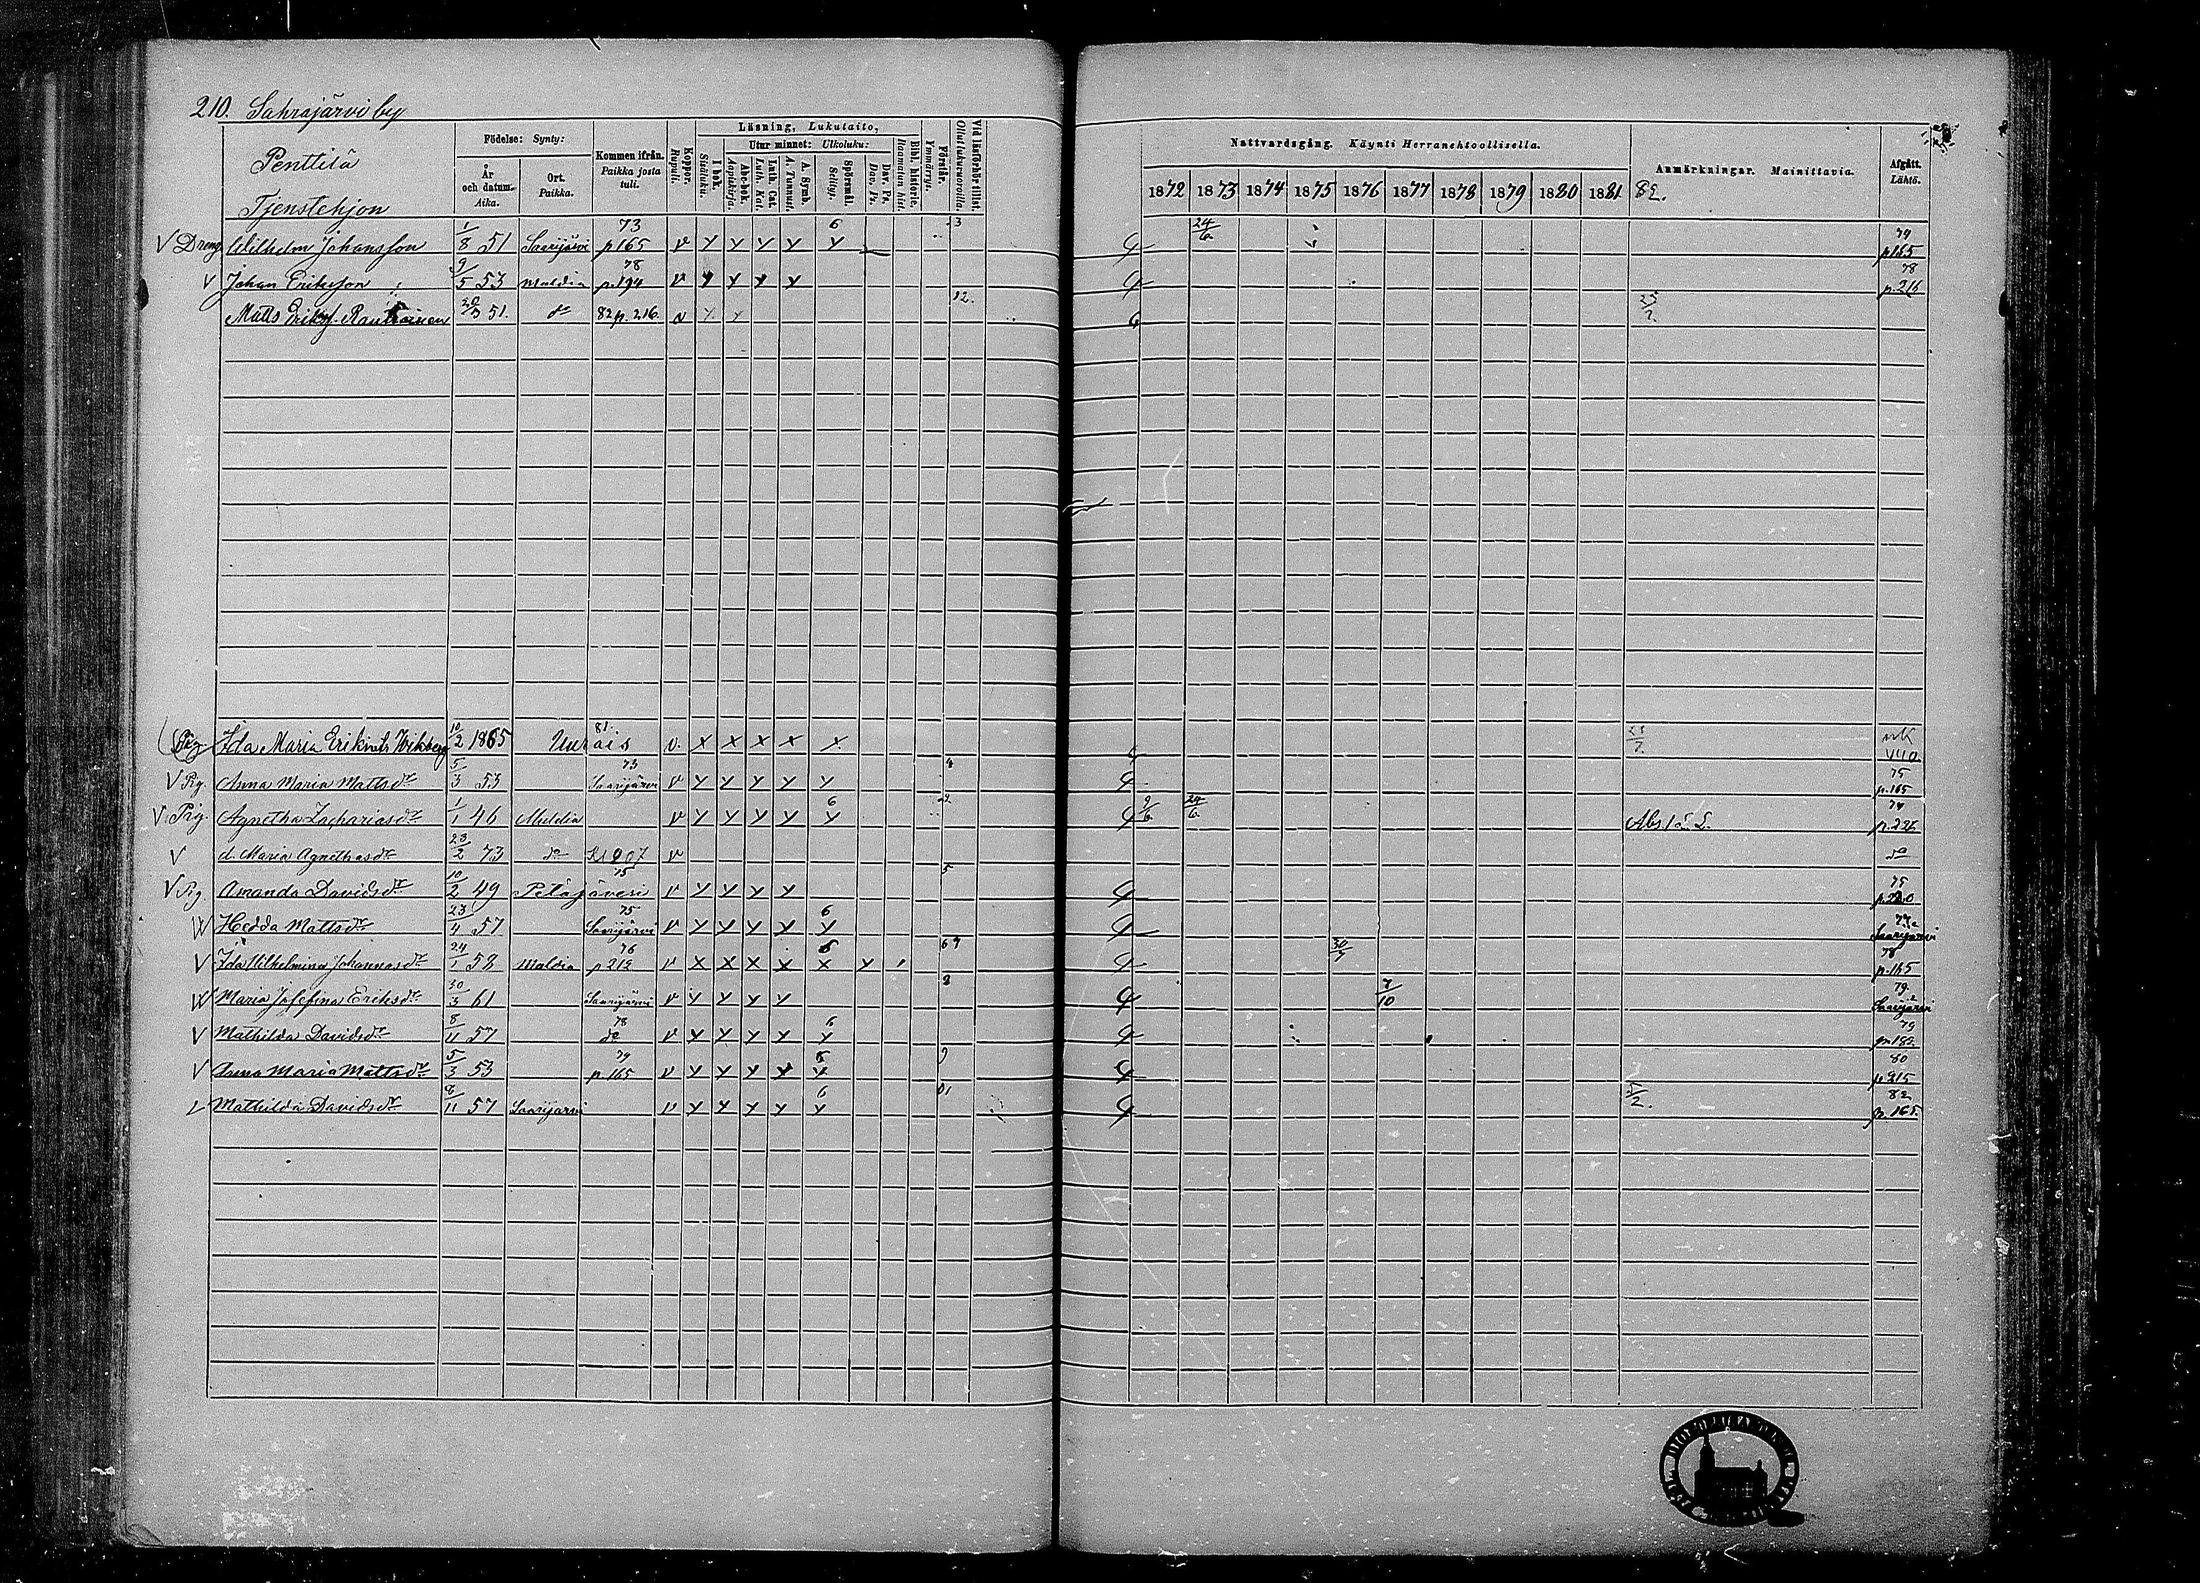 210. Sahrajärvi by
Penttilä
Tjenstehjon
Födelse: Synty:
År och datum. Aika.
Ort. Paikka.
Kommen ifrån. Paikka josta tuli.
Koppor. Rupuli.
Läsning, Lukutaito,
Utur minnet: Ulkoluku:
I bok. Sisäluku.
Abc-bok. Aapiskirja.
Luth. Cat. Luth. Kat.
A. Symb. A. Tunnust.
Spörsmål Selitys.
Dav. Ps. Dav. Ps.
Bibl. historie. Raamatun hist.
Förstår. Ymmärrys.
Vid läsförhör tillst. Ollut lukuvuoroilla.
Nattvardsgång. Käynti Herranehtoollisella.
1872 1873 1874 1875 1876 1877 1878 1879 1880 1881 82.
Anmärkningar. Mainittavia.
Afgått. Lähtö.
V Dreng Wilhelm Johansson 1/8 51 Saarijärvi 73 p165 v Y Y Y Y 6 Y 3 24/6 74 p165
V Johan Eriksson 9/5 53 Muldia 78 p.194 v Y Y Y Y 78 p.216
Matts Eriks. Rautiainen 20/3 51. do 82 p. 216. v Y Y 12. 25/7.
Pig Ida Maria Eriksdr Wikberg 10/2 1865 81. Uurais v. X X X X X 25/7.
V Pig Anna Maria Mattsdr 5/3 53 73 Saarijärvi v Y Y Y Y Y 4 75 p.165
V Pig. Agnetha Zachariasdr 1/1 46 Muldia v Y Y Y Y 6 Y 2. 9/6 24/6 74 p.226
V d. Maria Agnethasdr 23/2 73 do v do
V Pig Amanda Davidsdr 10/2 49 75 Petäjävesi v Y Y Y Y 5 75 p.220
W Hedda Mattsdr 23/4 57 75 Saarijärvi v Y Y Y Y 6 Y Saarijärvi
V Ida Wilhelmina Johannasdr 24/1 58 Muldia 76 p212 v X X X X 6 X Y 67 30/7 78 p.165
W Maria Josefina Eriksdr 30/3 61 Saarijärvi v Y Y Y Y 8 7/10 79. Saarijärvi
V Mathilda Davidsdr 8/11 57 78 do v Y Y Y Y 6 Y 79 p.182
V Anna Maria Mattsdr 5/3 53 79 p165 v Y Y Y Y 6 Y 9 80 p215
Mathilda Davidsdr 8/11 57 Saarijärvi v Y Y Y Y 6 Y 01 82 p.165.